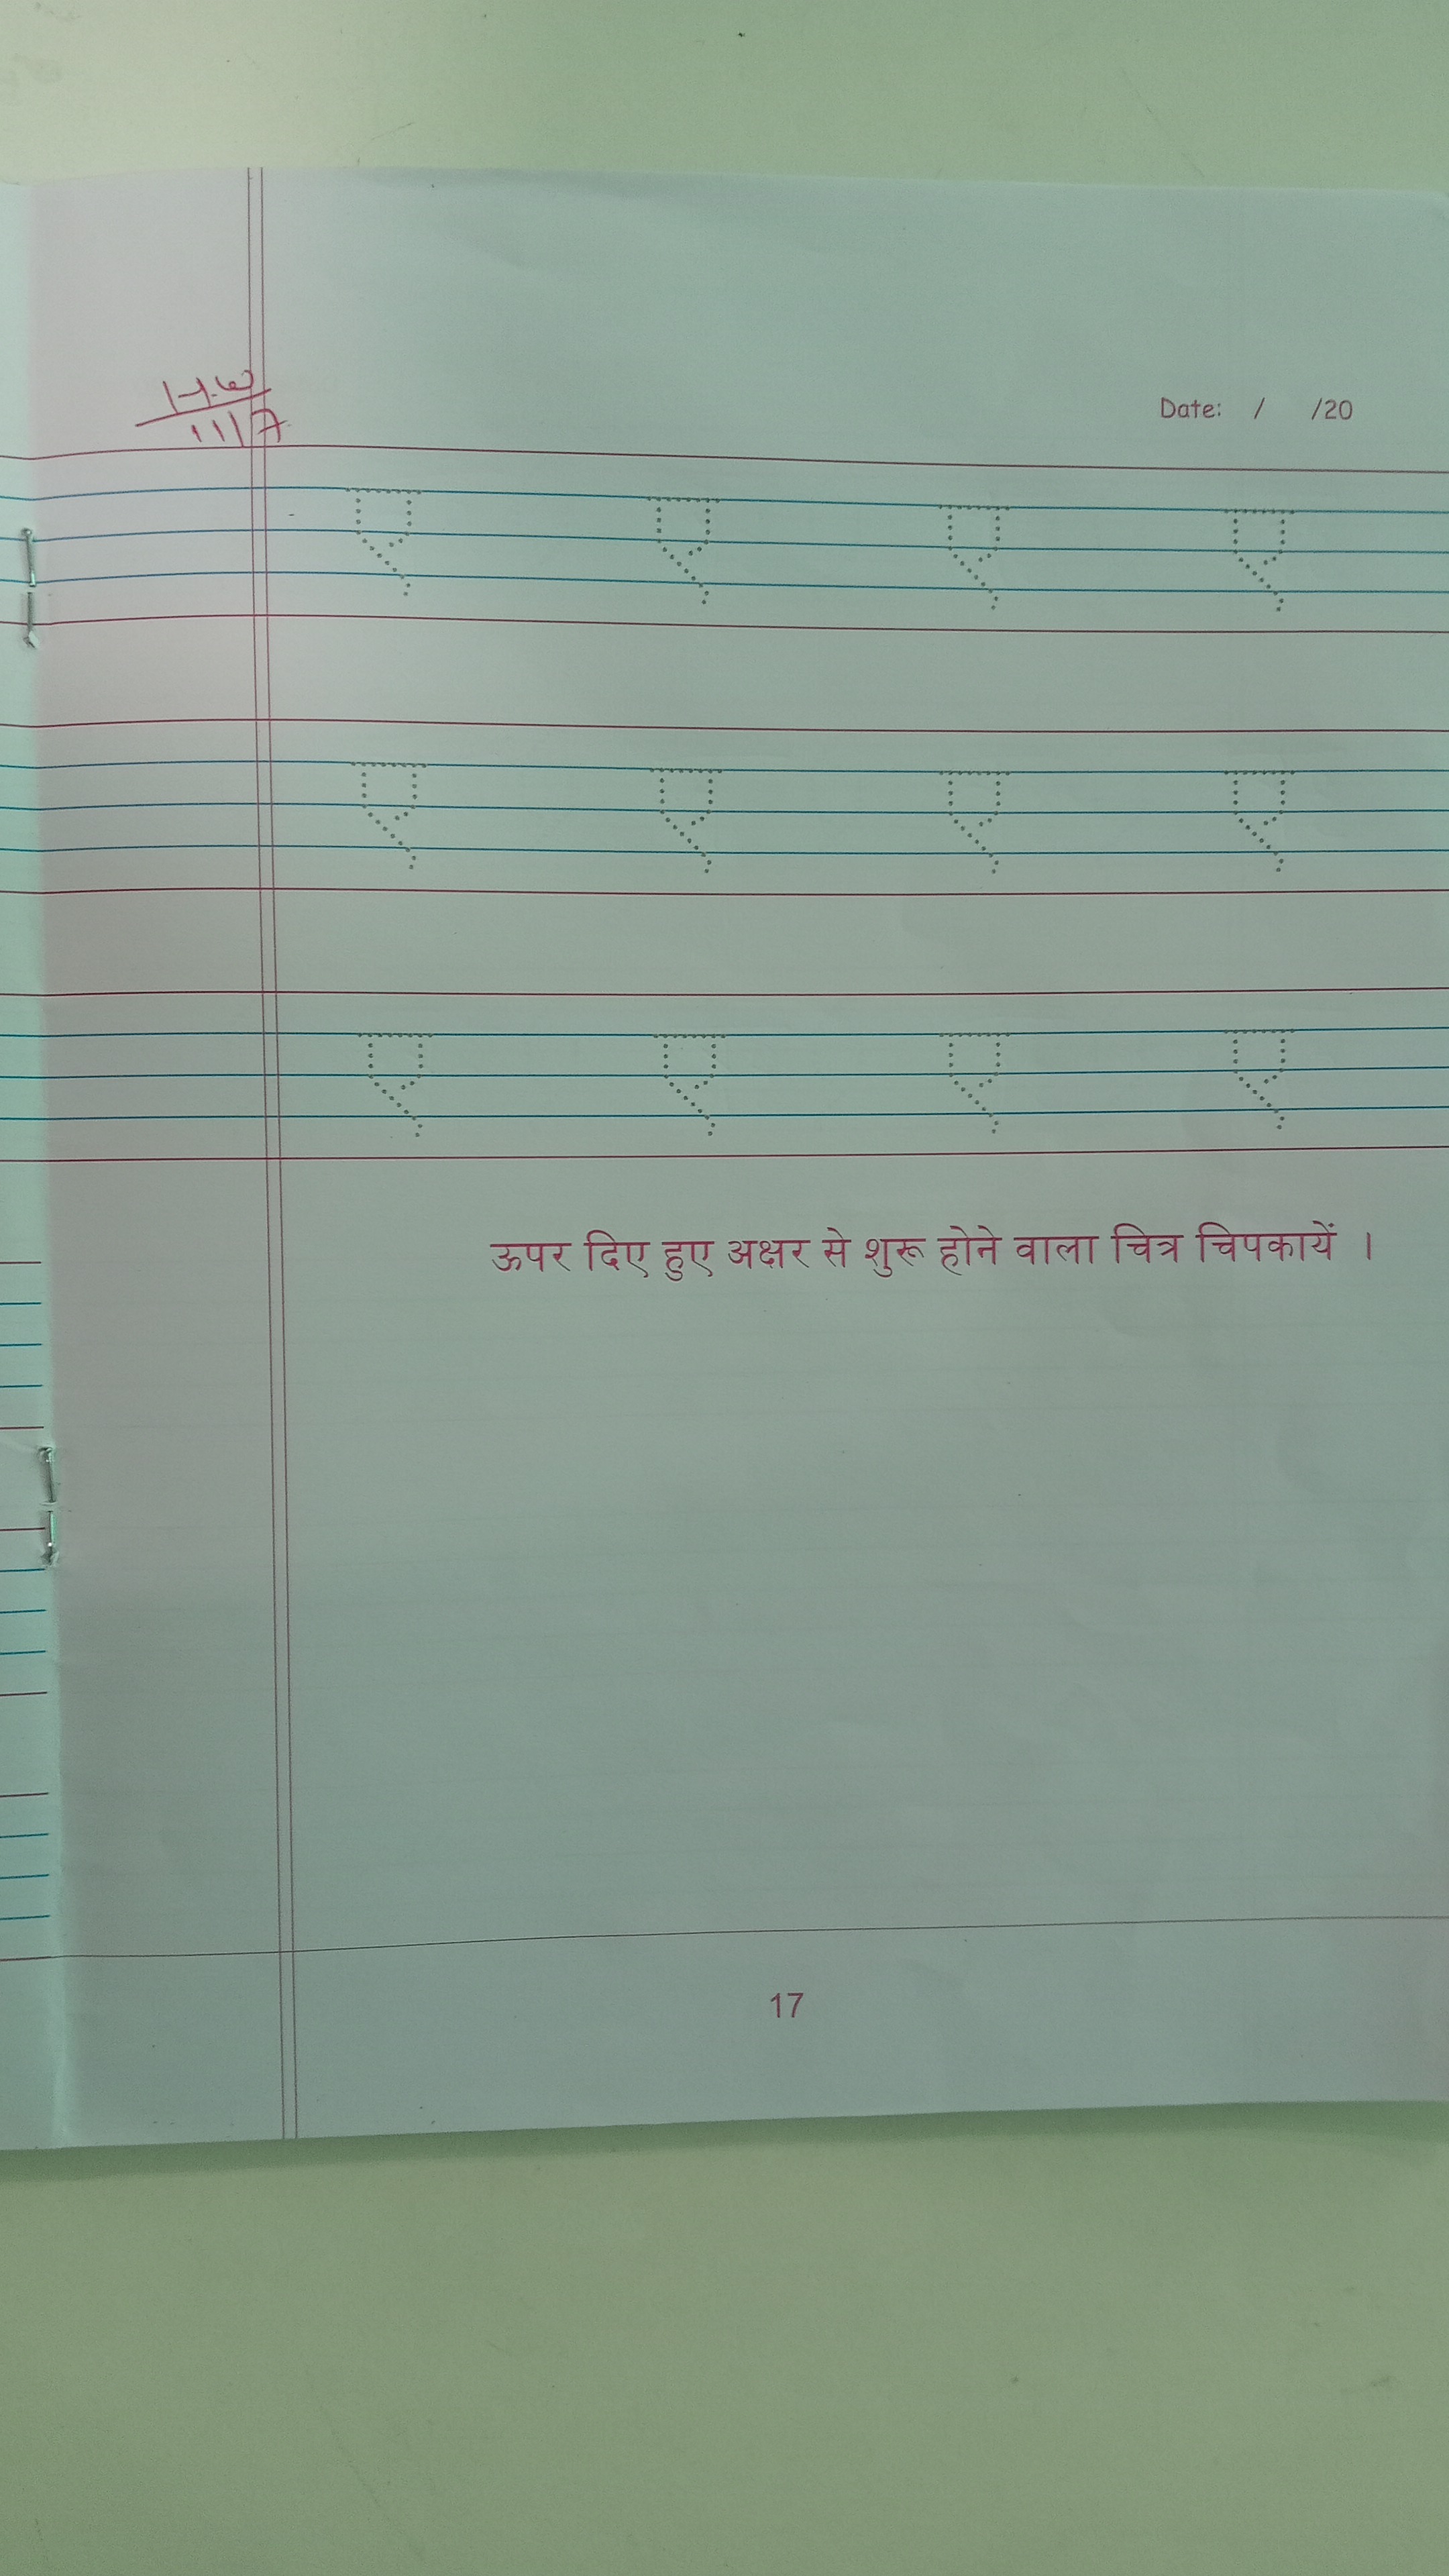 H.W
11/7
Date: / /20
ए ए ए ए
ए ए ए ए
ए ए ए ए
ऊपर दिए हुए अक्षर से शुरू होने वाला चित्र चिपकायें ।
17